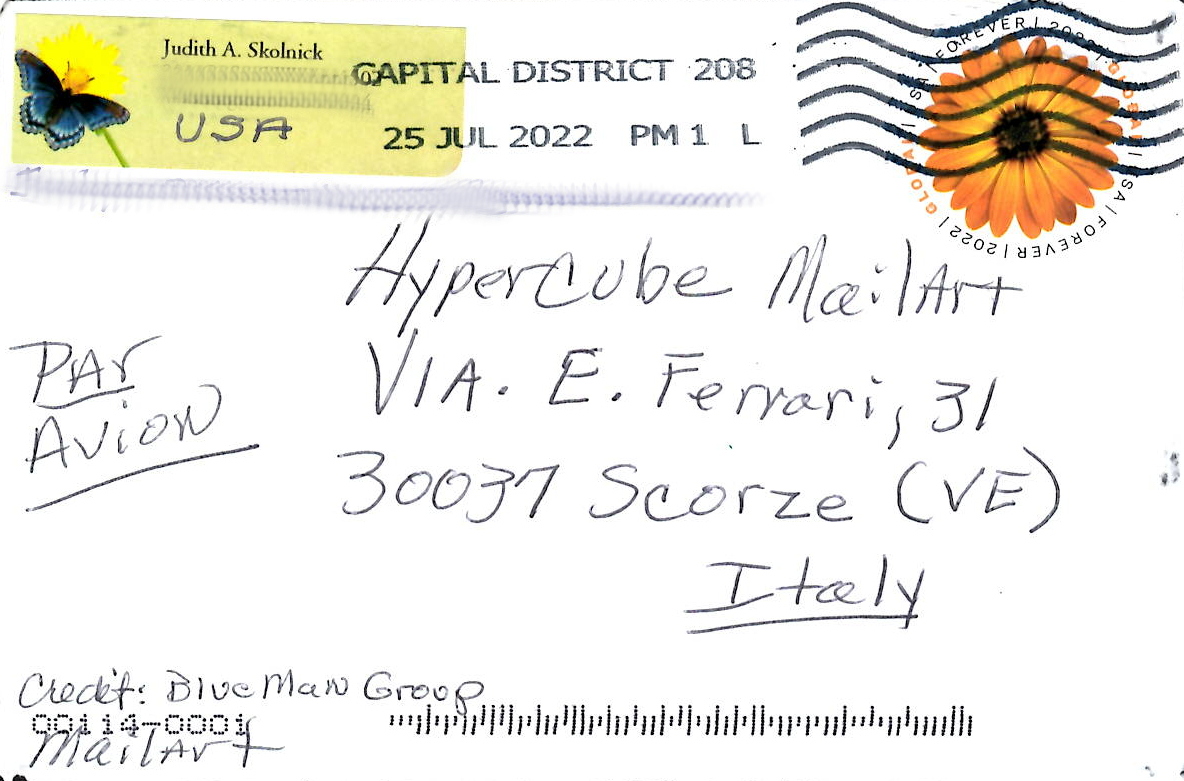 Judith A. Skolnick
USA
CAPITAL DISTRICT 208
25 JUL 2022 PM 1 L
USA | FOREVER | 2022 | GLOBAL | USA | FOREVER | 2022 | GLOBAL
HyperCube MailArt
PAr
Avion
VIA. E. Ferrari, 31
30037 Scorze (VE)
Italy
Credit: Blue Man Group
00114-0001
MailArt